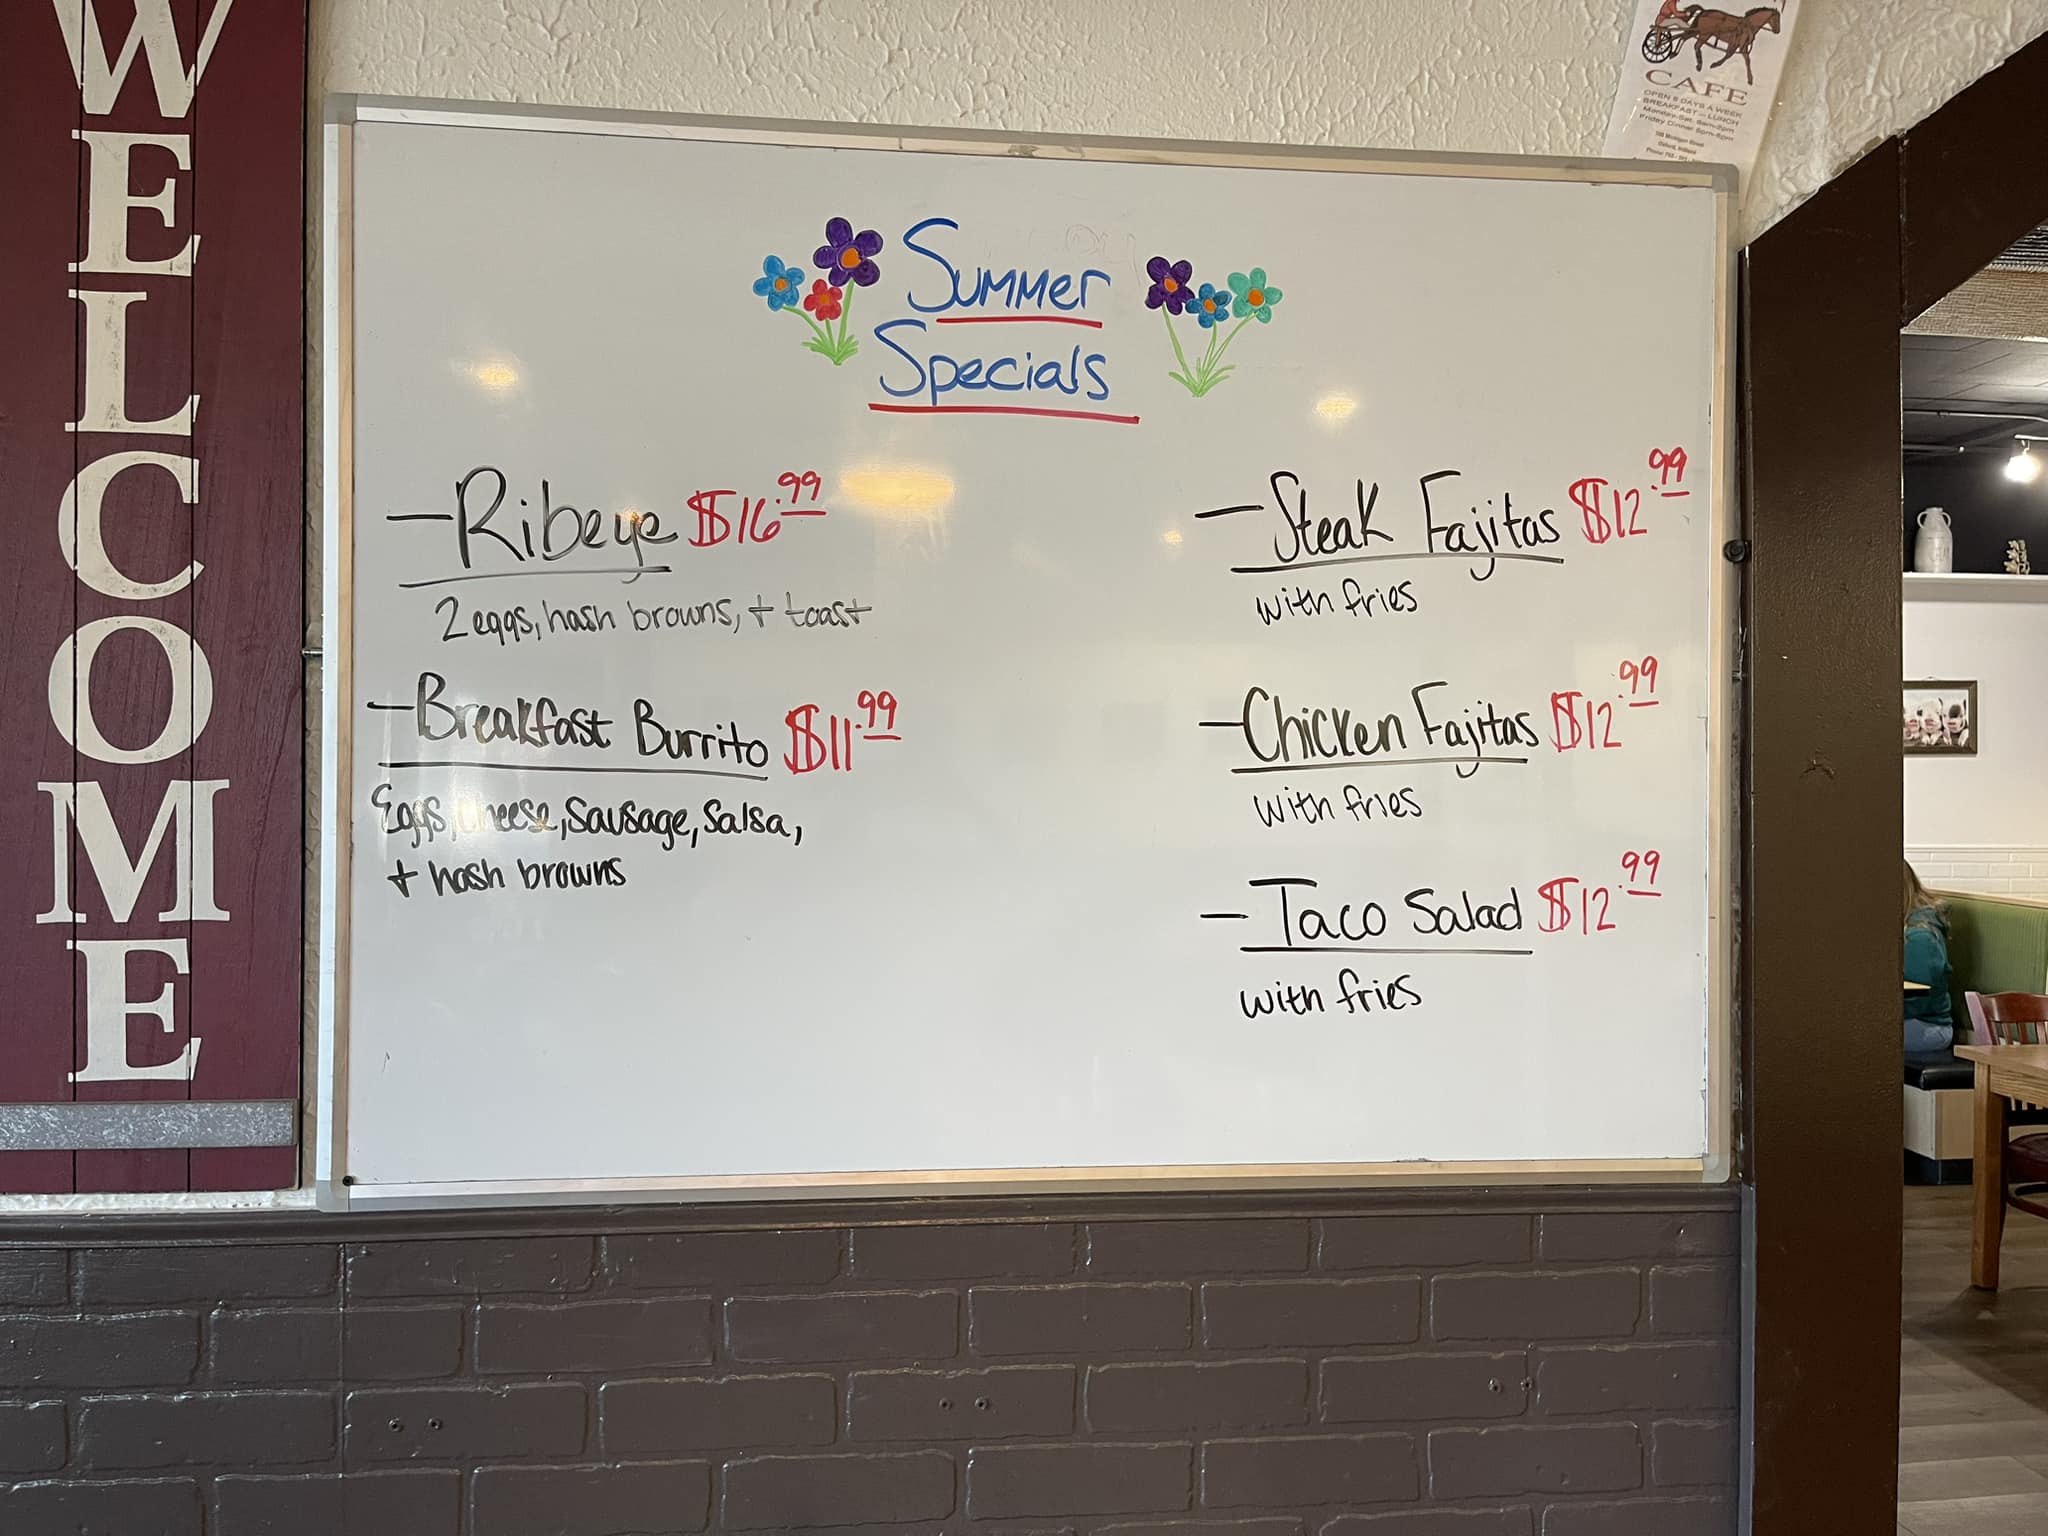 WELCOME
CAFE
OPEN 6 DAYS A WEEK
BREAKFAST - LUNCH
Monday-Sat. 6am-2pm
Friday Dinner 5pm-8pm
Oxford, Indiana
Summer
Specials
- Ribeye $16.99
2 eggs, hash browns, + toast
- Breakfast Burrito $11.99
Eggs, cheese, sausage, salsa,
+ hash browns
- Steak Fajitas $12.99
with fries
- Chicken Fajitas $12.99
with fries
- Taco Salad $12.99
with fries